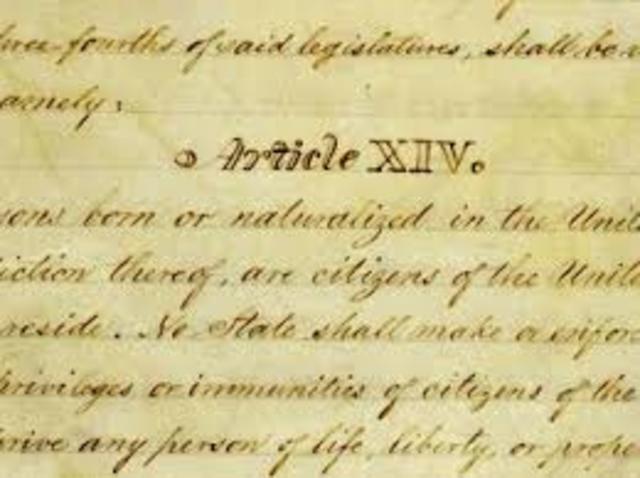 three-fourths of said legislatures, shall be
amely:
Article XIV.
sons born or naturalized in the Unite
iction thereof, are citizens of the Unite
reside. No State shall make or enfor
privileges or immunities of citizens of the
prive any person of life, liberty, or prope